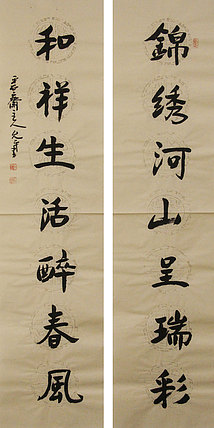 錦绣河山呈瑞彩
和祥生活醉春風